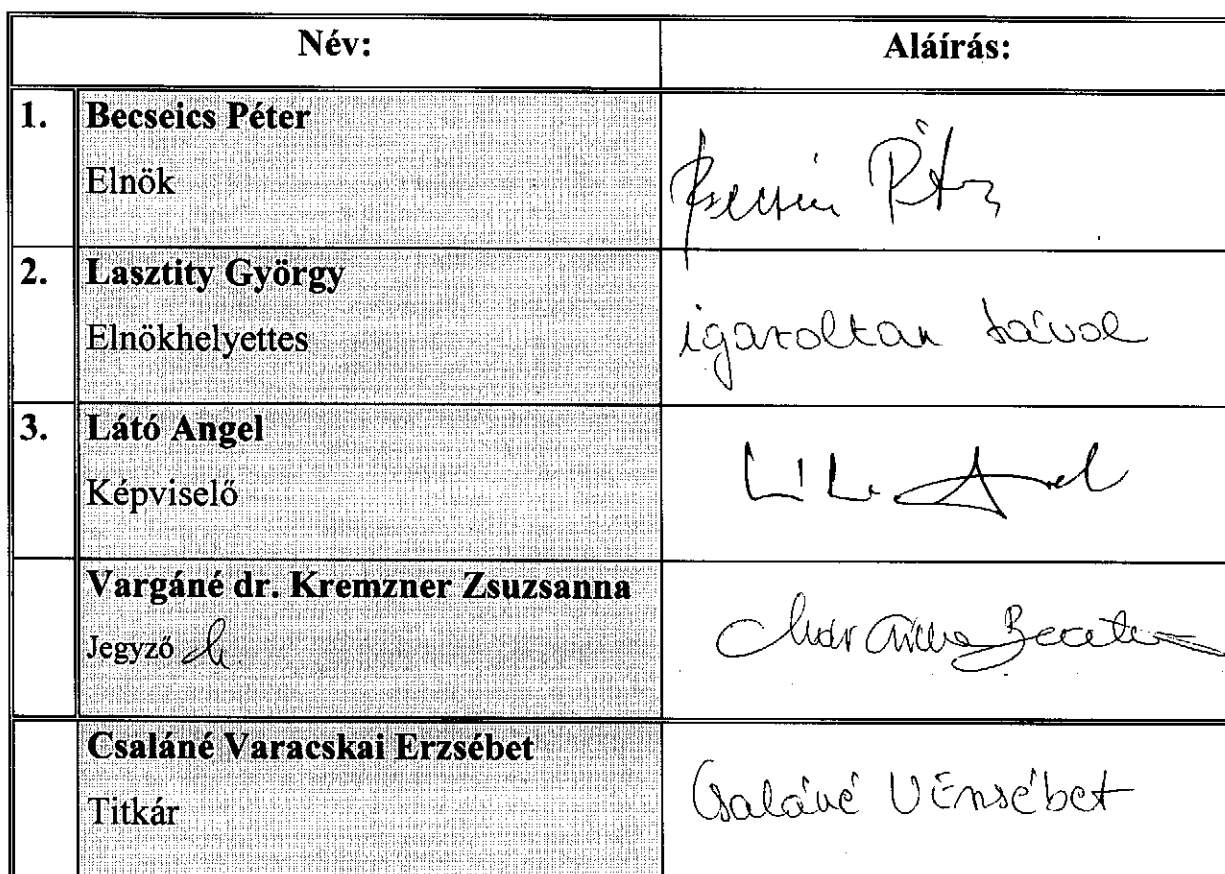 Név: Aláírás:
1. Becseics Péter
Elnök
Péter
2. Lasztity György
Elnökhelyettes
igazoltan távol
3. Látó Angel
Képviselő
Vargáné dr. Kremzner Zsuzsanna
Jegyző
Csaláné Varacskai Erzsébet
Titkár
Csaláné V Erzsébet